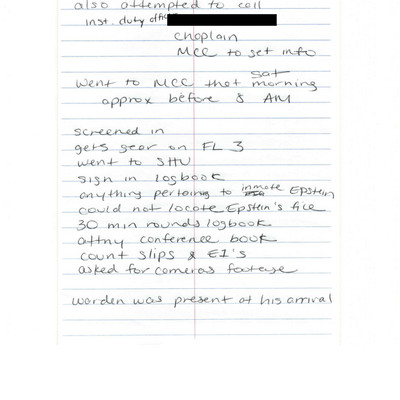 also attempted to call
inst. duty officer
chaplain
MCC to get info
sat
went to MCC that morning
approx before 8 AM
screened in
gets gear on FL 3
went to SHU
sign in logbook
inmate
anything pertaing to Epstein
could not locate Epstein's file
30 min rounds logbook
attny conference book
count slips & EI's
asked for cameras footage
warden was present at his arrival